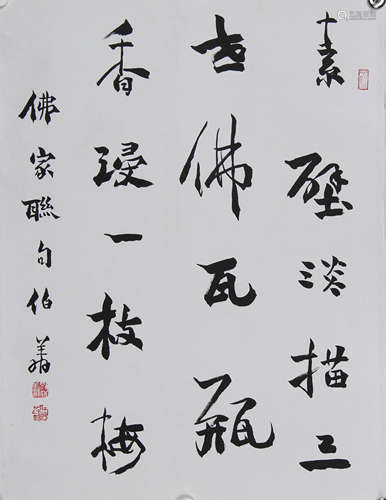 素壁淡描三
世佛瓦瓶
香浸一枝梅
佛家聯句伯翁